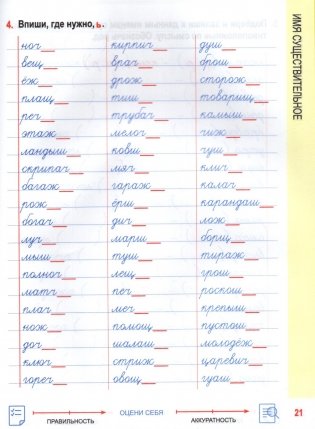 4. Впиши, где нужно, ь.
ИМЯ СУЩЕСТВИТЕЛЬНОЕ
ноч__ кирпич__ душ__
вещ__ врач__ брош__
ёж__ дрож__ сторож__
плащ__ тиш__ товарищ__
реч__ трубач__ камыш__
этаж__ мелоч__ чиж__
ландыш__ ковш__ чуш__
скрипач__ мяч__ клич__
багаж__ гараж__ калач__
рож__ ёрш__ карандаш__
богач__ дич__ лож__
луч__ марш__ борщ__
мыш__ туш__ тираж__
полноч__ лещ__ грош__
матч__ печ__ роскош__
плач__ меч__ крепыш__
нож__ помощ__ пустош__
доч__ шалаш__ молодёж__
ключ__ стриж__ царевич__
гореч__ овощ__ гуаш__
ПРАВИЛЬНОСТЬ ОЦЕНИ СЕБЯ АККУРАТНОСТЬ
21